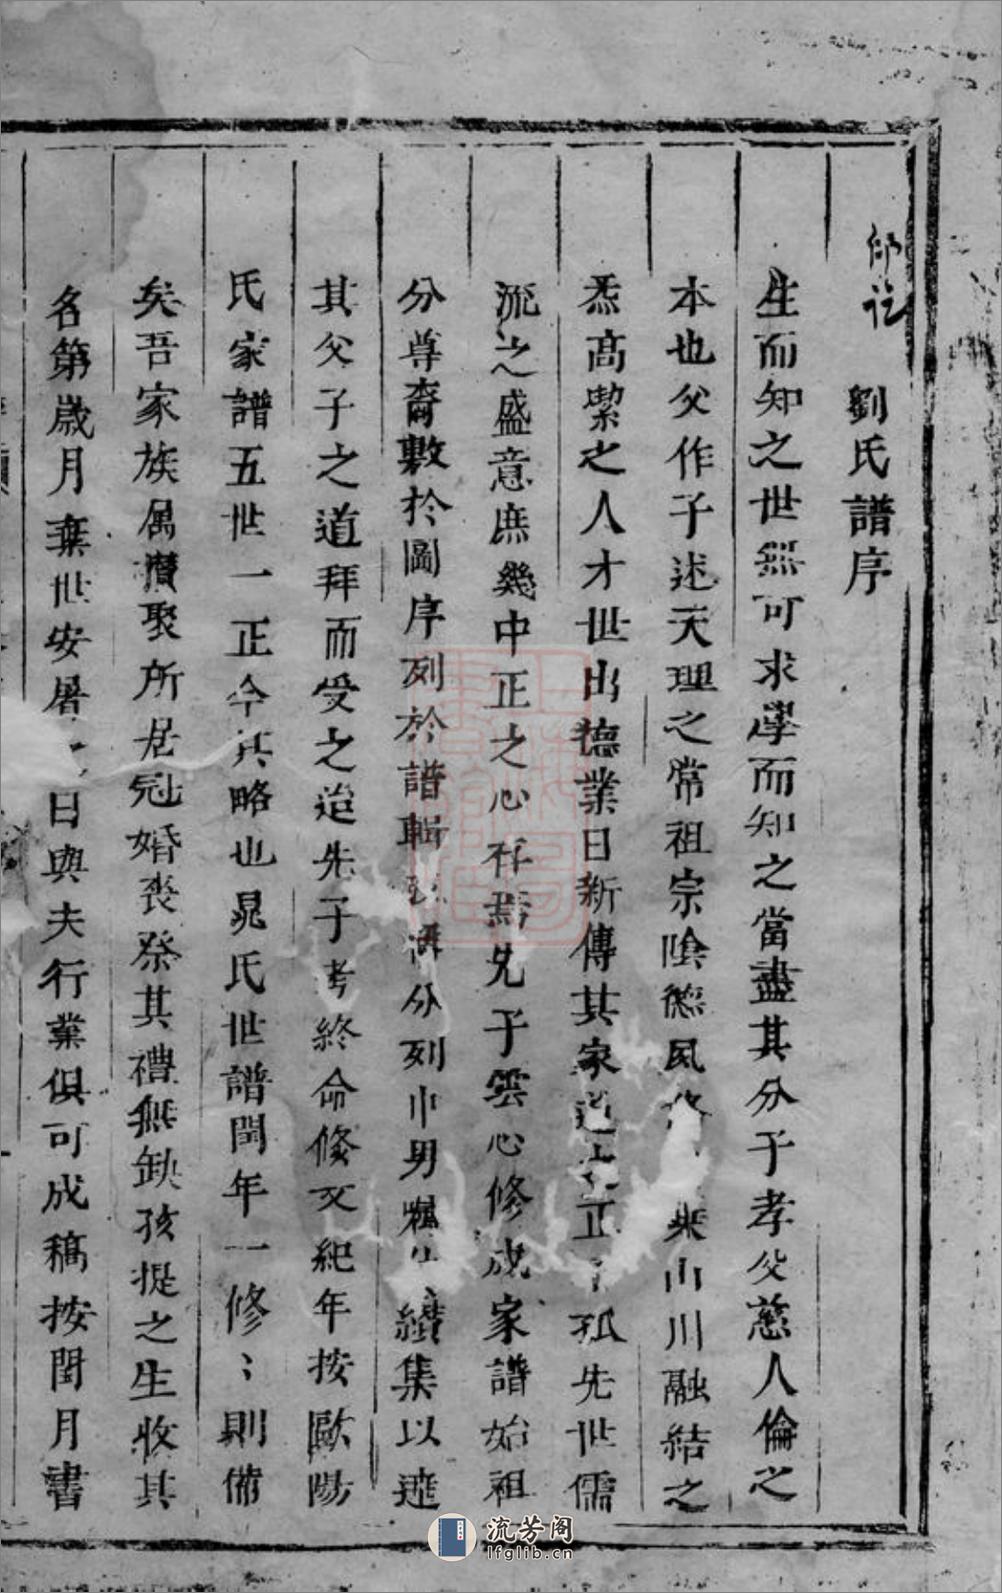 劉氏譜序
生而知之世無可求學而知之當盡其分子孝父慈人倫之
本也父作子述天理之常祖宗陰德風山川融結之
炁高潔之人才世出德業日新傳其家道正孤先世儒
流之盛意庶幾中正之心存焉先子雲心修成家譜始祖
分尊裔數於圖序列於譜輯分列巾男續集以遊
其父子之道拜而受之迨先子考終命修文紀年按歐陽
氏家譜五世一正今其略也晁氏世譜閏年一修〻則備
矣吾家族属攅聚所居冠婚喪祭其禮無缺孩提之生收其
名第歲月棄世安厝日與夫行業俱可成稿按閏月書
流芳阁
lfglib.cn